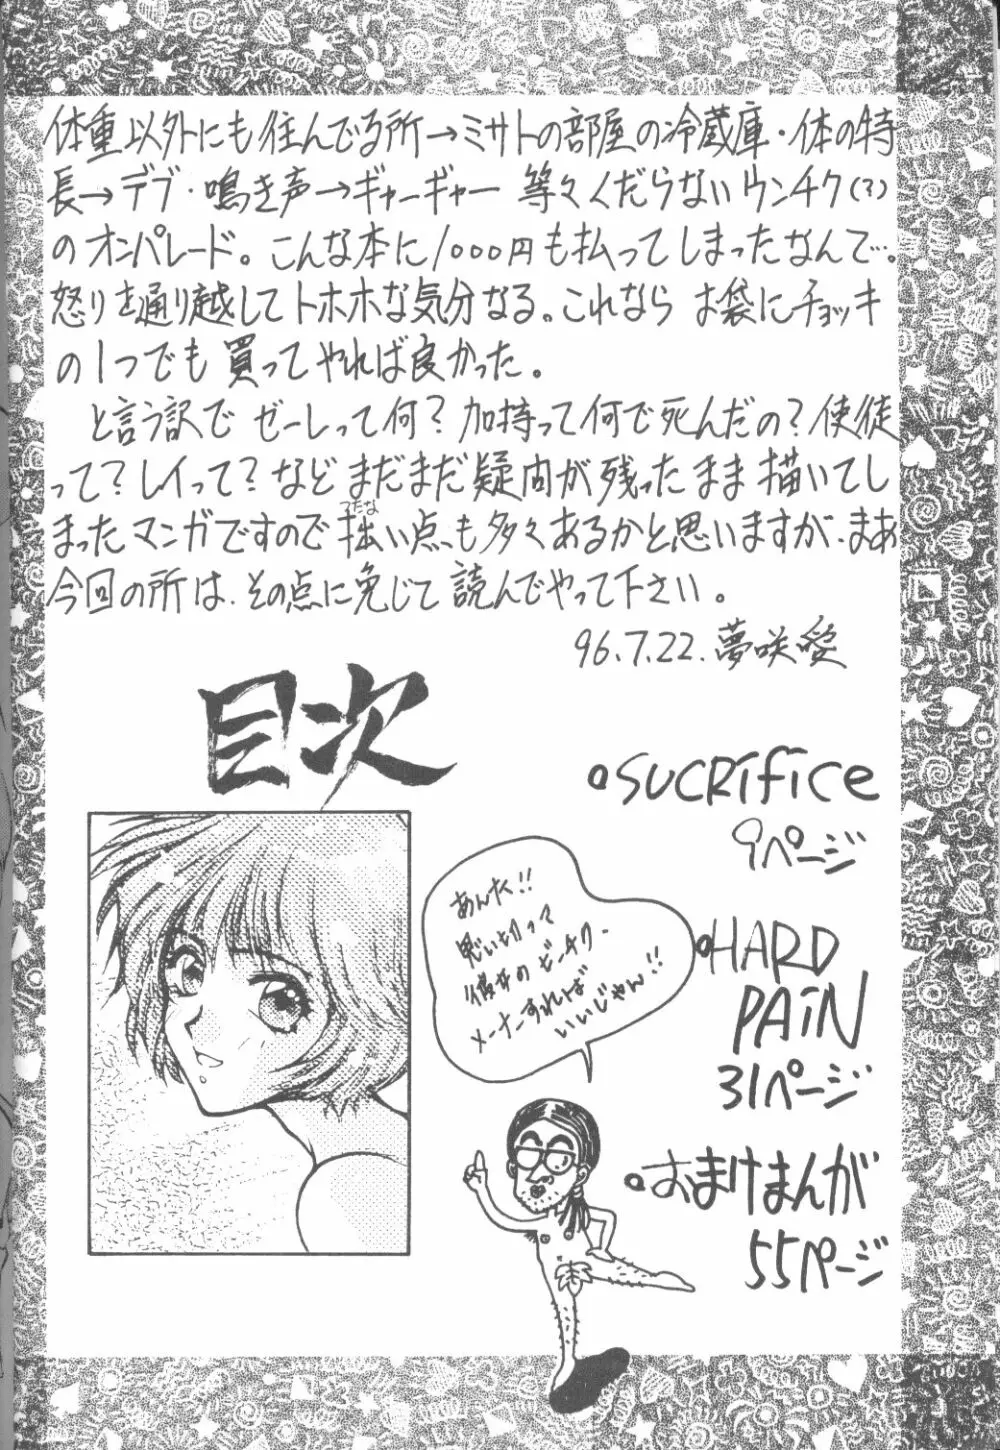 体重以外にも住んでる所→ミサトの部屋の冷蔵庫・体の特
長→デブ・鳴き声→ギャーギャー 等々くだらないウンチク(?)
のオンパレード。こんな本に1000円も払ってしまったなんて…。
怒りを通り越してトホホな気分なる。これなら お袋にチョッキ
の1つでも買ってやれば良かった。
と言う訳で ゼーレって何?加持って何で死んだの?使徒
って?レイって?など まだまだ疑問が残ったまま描いてし
まったマンガですので拙い点も多々あるかと思いますが、まあ
今回の所は、その点に免じて読んでやって下さい。
96.7.22.夢咲愛
目次
•SUCRIFICE
9ページ
•HARD
PAIN
31ページ
•おまけまんが
55ページ
あんた!!
思い切って
メーナーすれば
いいじゃん!!